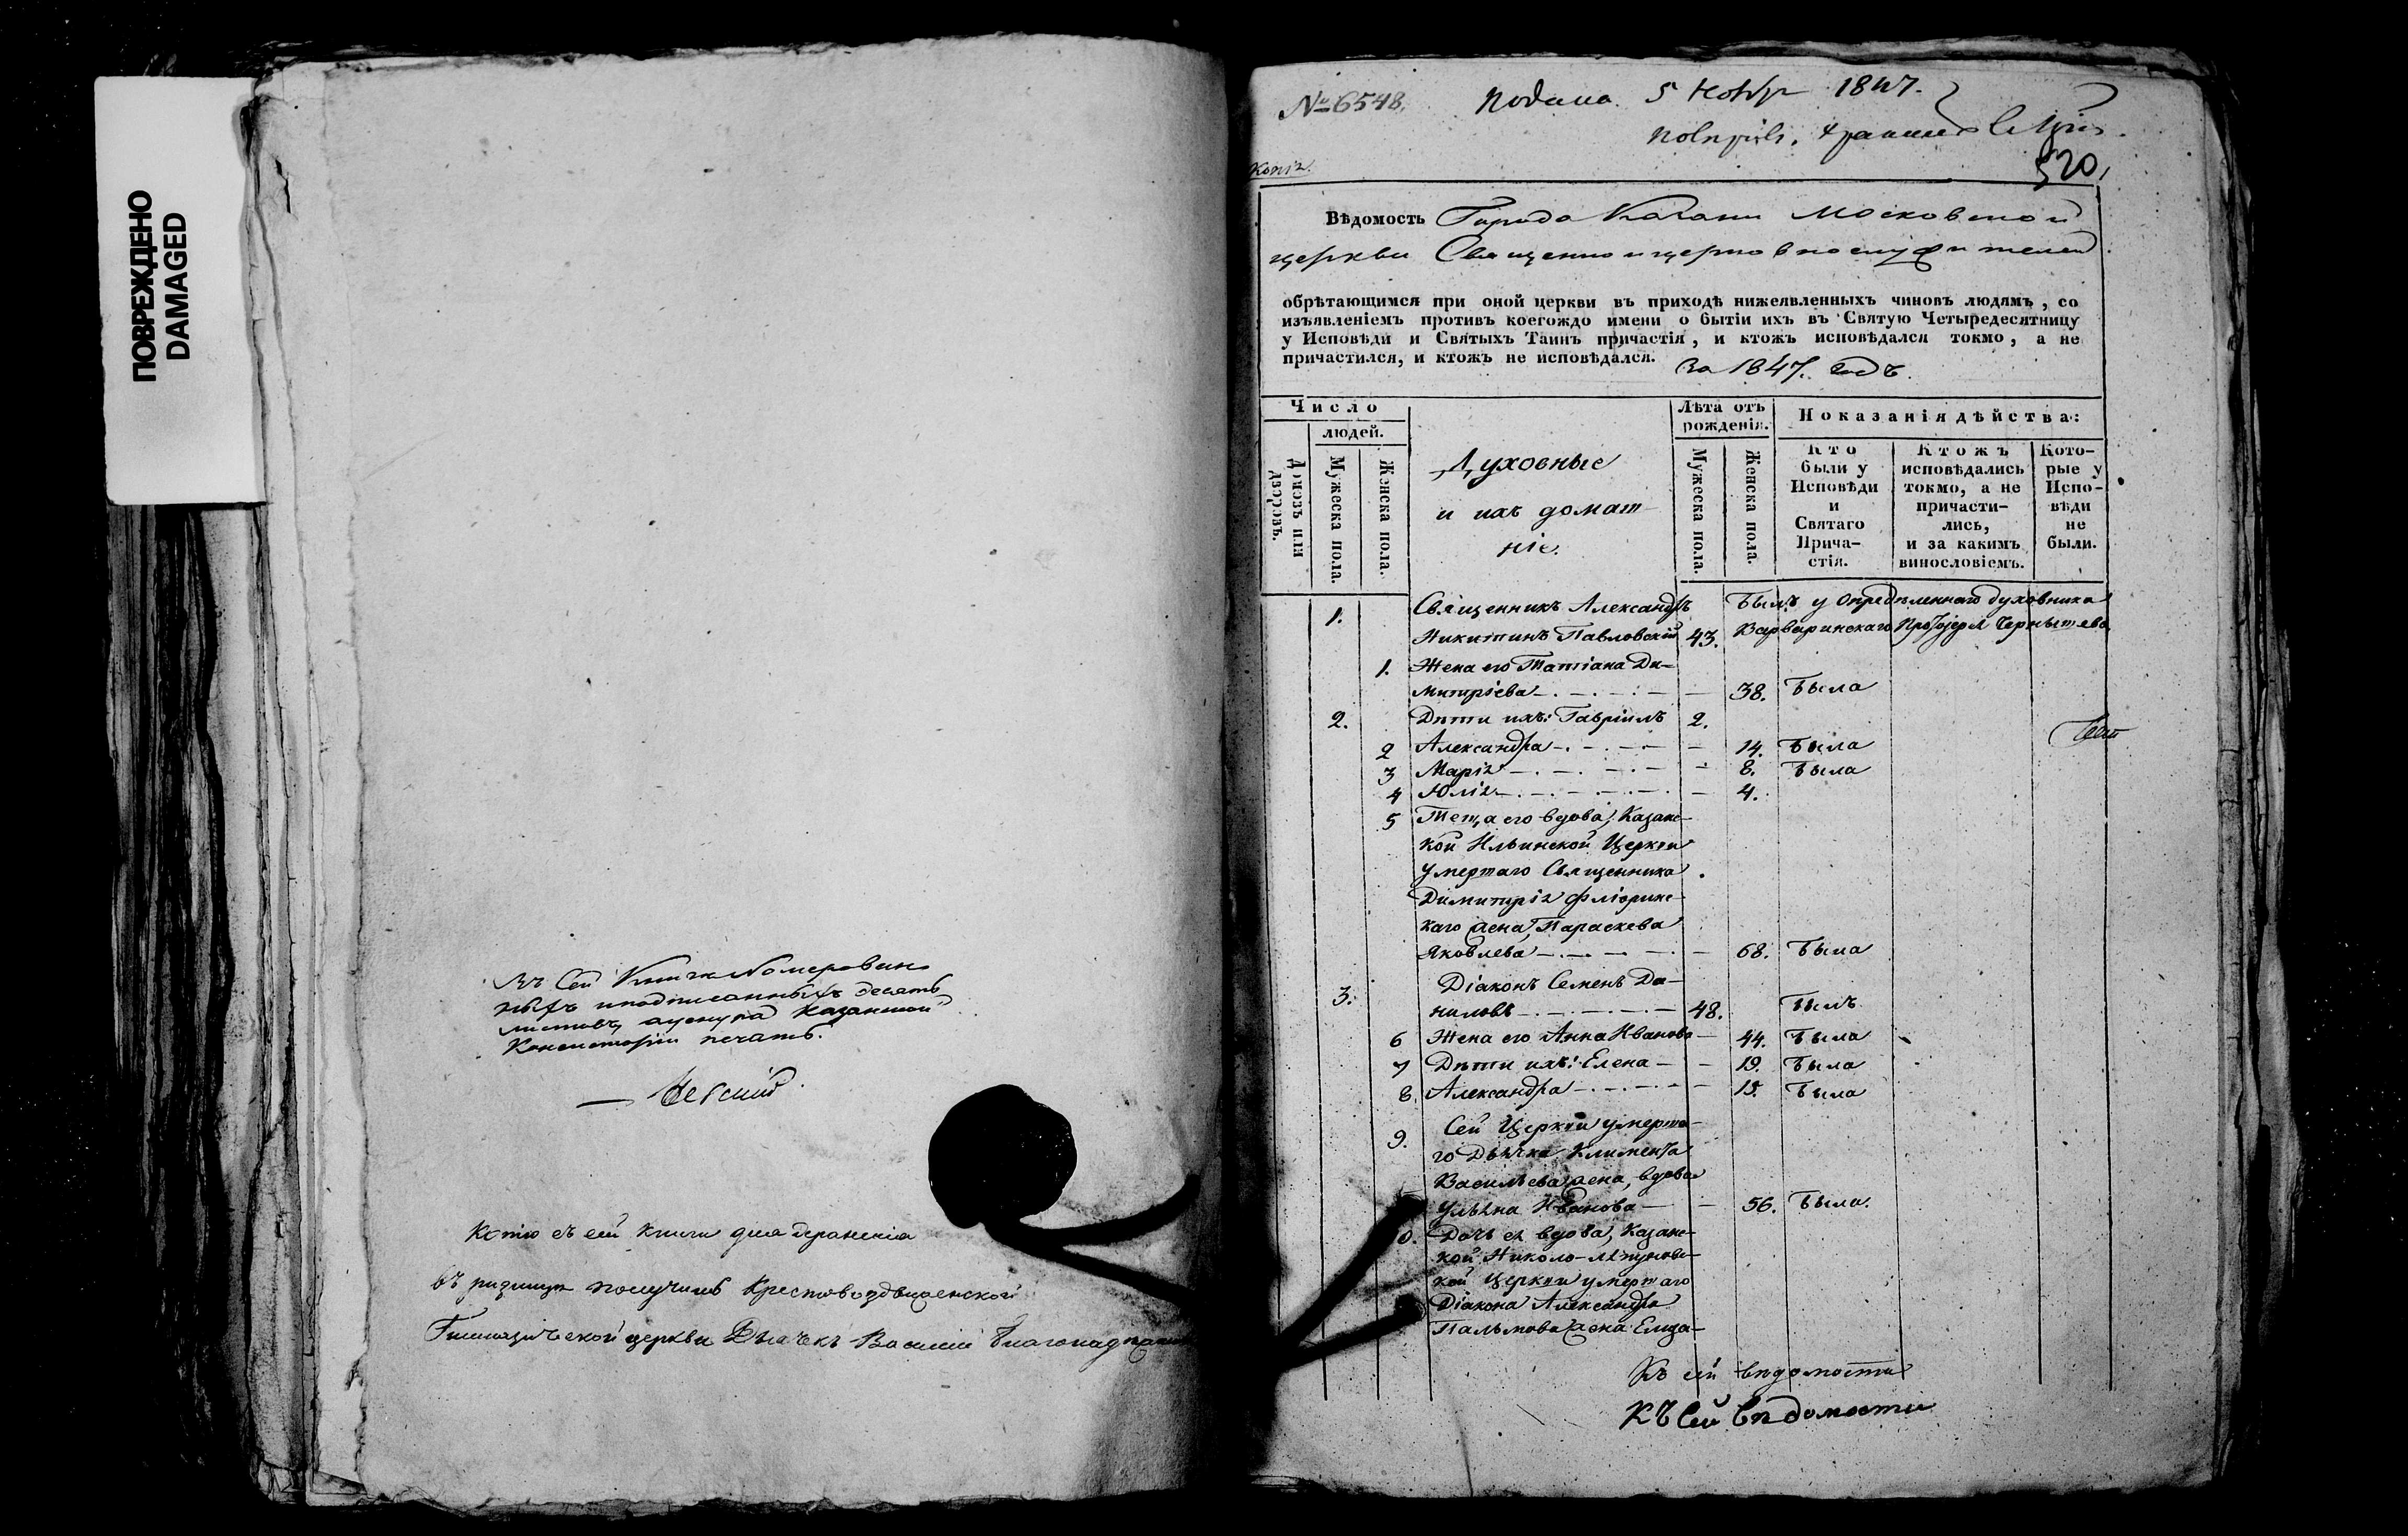 ПОВРЕЖДЕНО
DAMAGED
Въ сей книги номерован-
ныхъ и подписанныхъ десять
листовъ, а у снура Казанской
Консисторіи печать.
Копію съ сей книги для храненія
въ ризницѣ получилъ Крестовоздвиженской
Гимназической церкви Дьячекъ Василій
№ 6548.
Подана 5 Ноябр 1847.
Копія.
520,
Вѣдомость Города Казани Московской
церкви Священно и церковнослужителей
обрѣтающимся при оной церкви въ приходѣ нижеявленныхъ чиновъ людямъ, со
изъявленіемъ противъ коегождо имени о бытіи ихъ въ Святую Четыредесятницу
у Исповѣди и Святыхъ Таинъ причастія, и ктожъ исповѣдался токмо, а не
причастился, и ктожъ не исповѣдался. За 1847. годъ.
Число
людей.
Домовъ или дворовъ.
Мужеска пола.
Женска пола.
Духовные
и ихъ домаш-
ніе.
Лѣта отъ рожденія.
Мужеска пола.
Женска пола.
Показанія дѣйства:
Кто были у Исповѣди и Святаго Прича-стія.
Ктожъ исповѣдались токмо, а не причасти-лись, и за какимъ винословіемъ.
Кото-рые у Испо-вѣди не были.
1. Священникъ Александръ Былъ у опредѣленнаго духовника
Никитинъ Павловскій 43. Варваринскаго Протоіерея Чернышева
1. Жена его Татіана Ди-
митріева — 38. Была
2. Дѣти ихъ: Гавріилъ 2.
2 Александра — 14. Была
3 Марія — 8. Была
4 Юлія — 4.
5 Теща его вдова, Казанс-
кой Ильинской Церкви
умершаго Священника
Димитрія Флоринс-
каго жена, Параскева
Яковлева — 68. Была
3. Діаконъ Семенъ Да-
ниловъ — 48. Былъ
6 Жена его Анна Иванова — 44. Была
7 Дѣти ихъ: Елена — 19. Была
8. Александра — 15. Была
9. Сей Церкви умерша-
го Дьячка Климента
Васильева жена, вдова
Ульяна Иванова — 56. Была.
0. Дочь ея вдова, Казанс-
кой Николо-Ляпуновс-
кой Церкви умершаго
Діакона Александра
Пальмова жена Елиза-
Къ сей вѣдомости
Къ сей вѣдомости